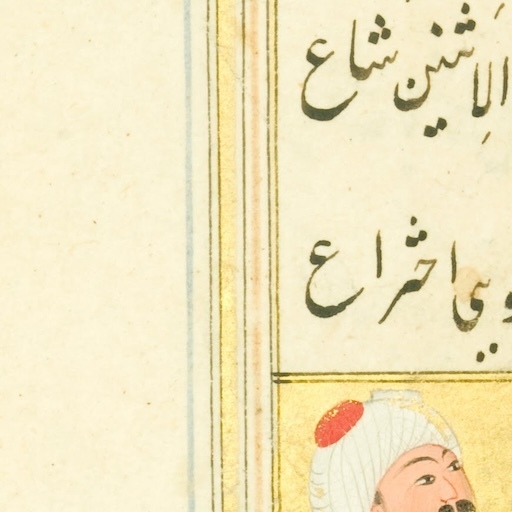 الاثنین شاع
اختراع